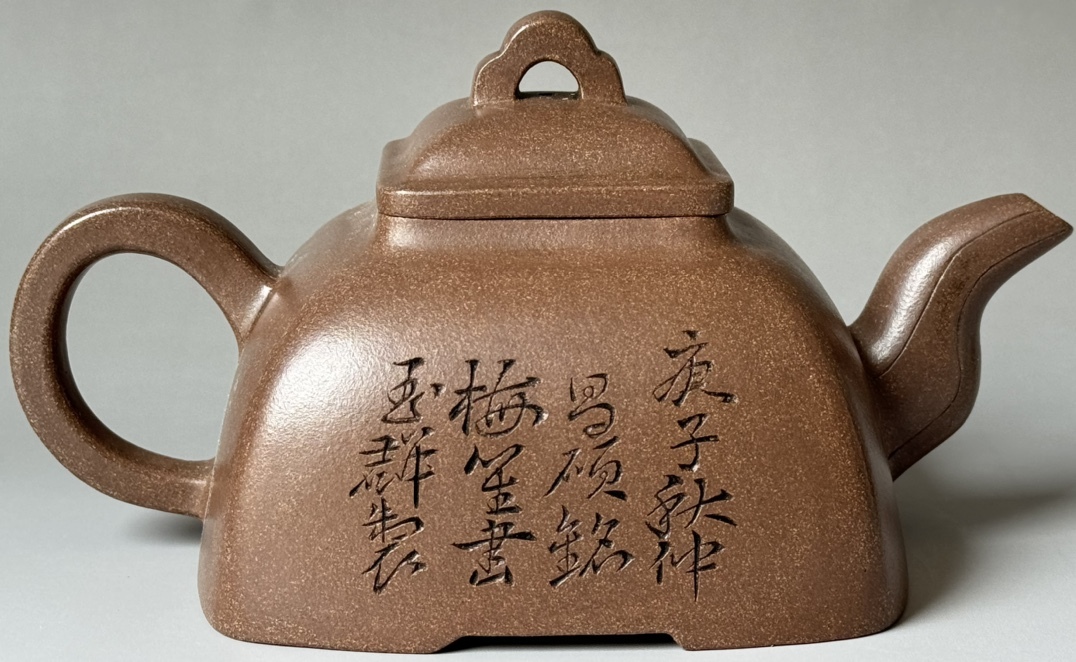 庚子秋仲
昌碩銘
梅笙畫
玉麟製